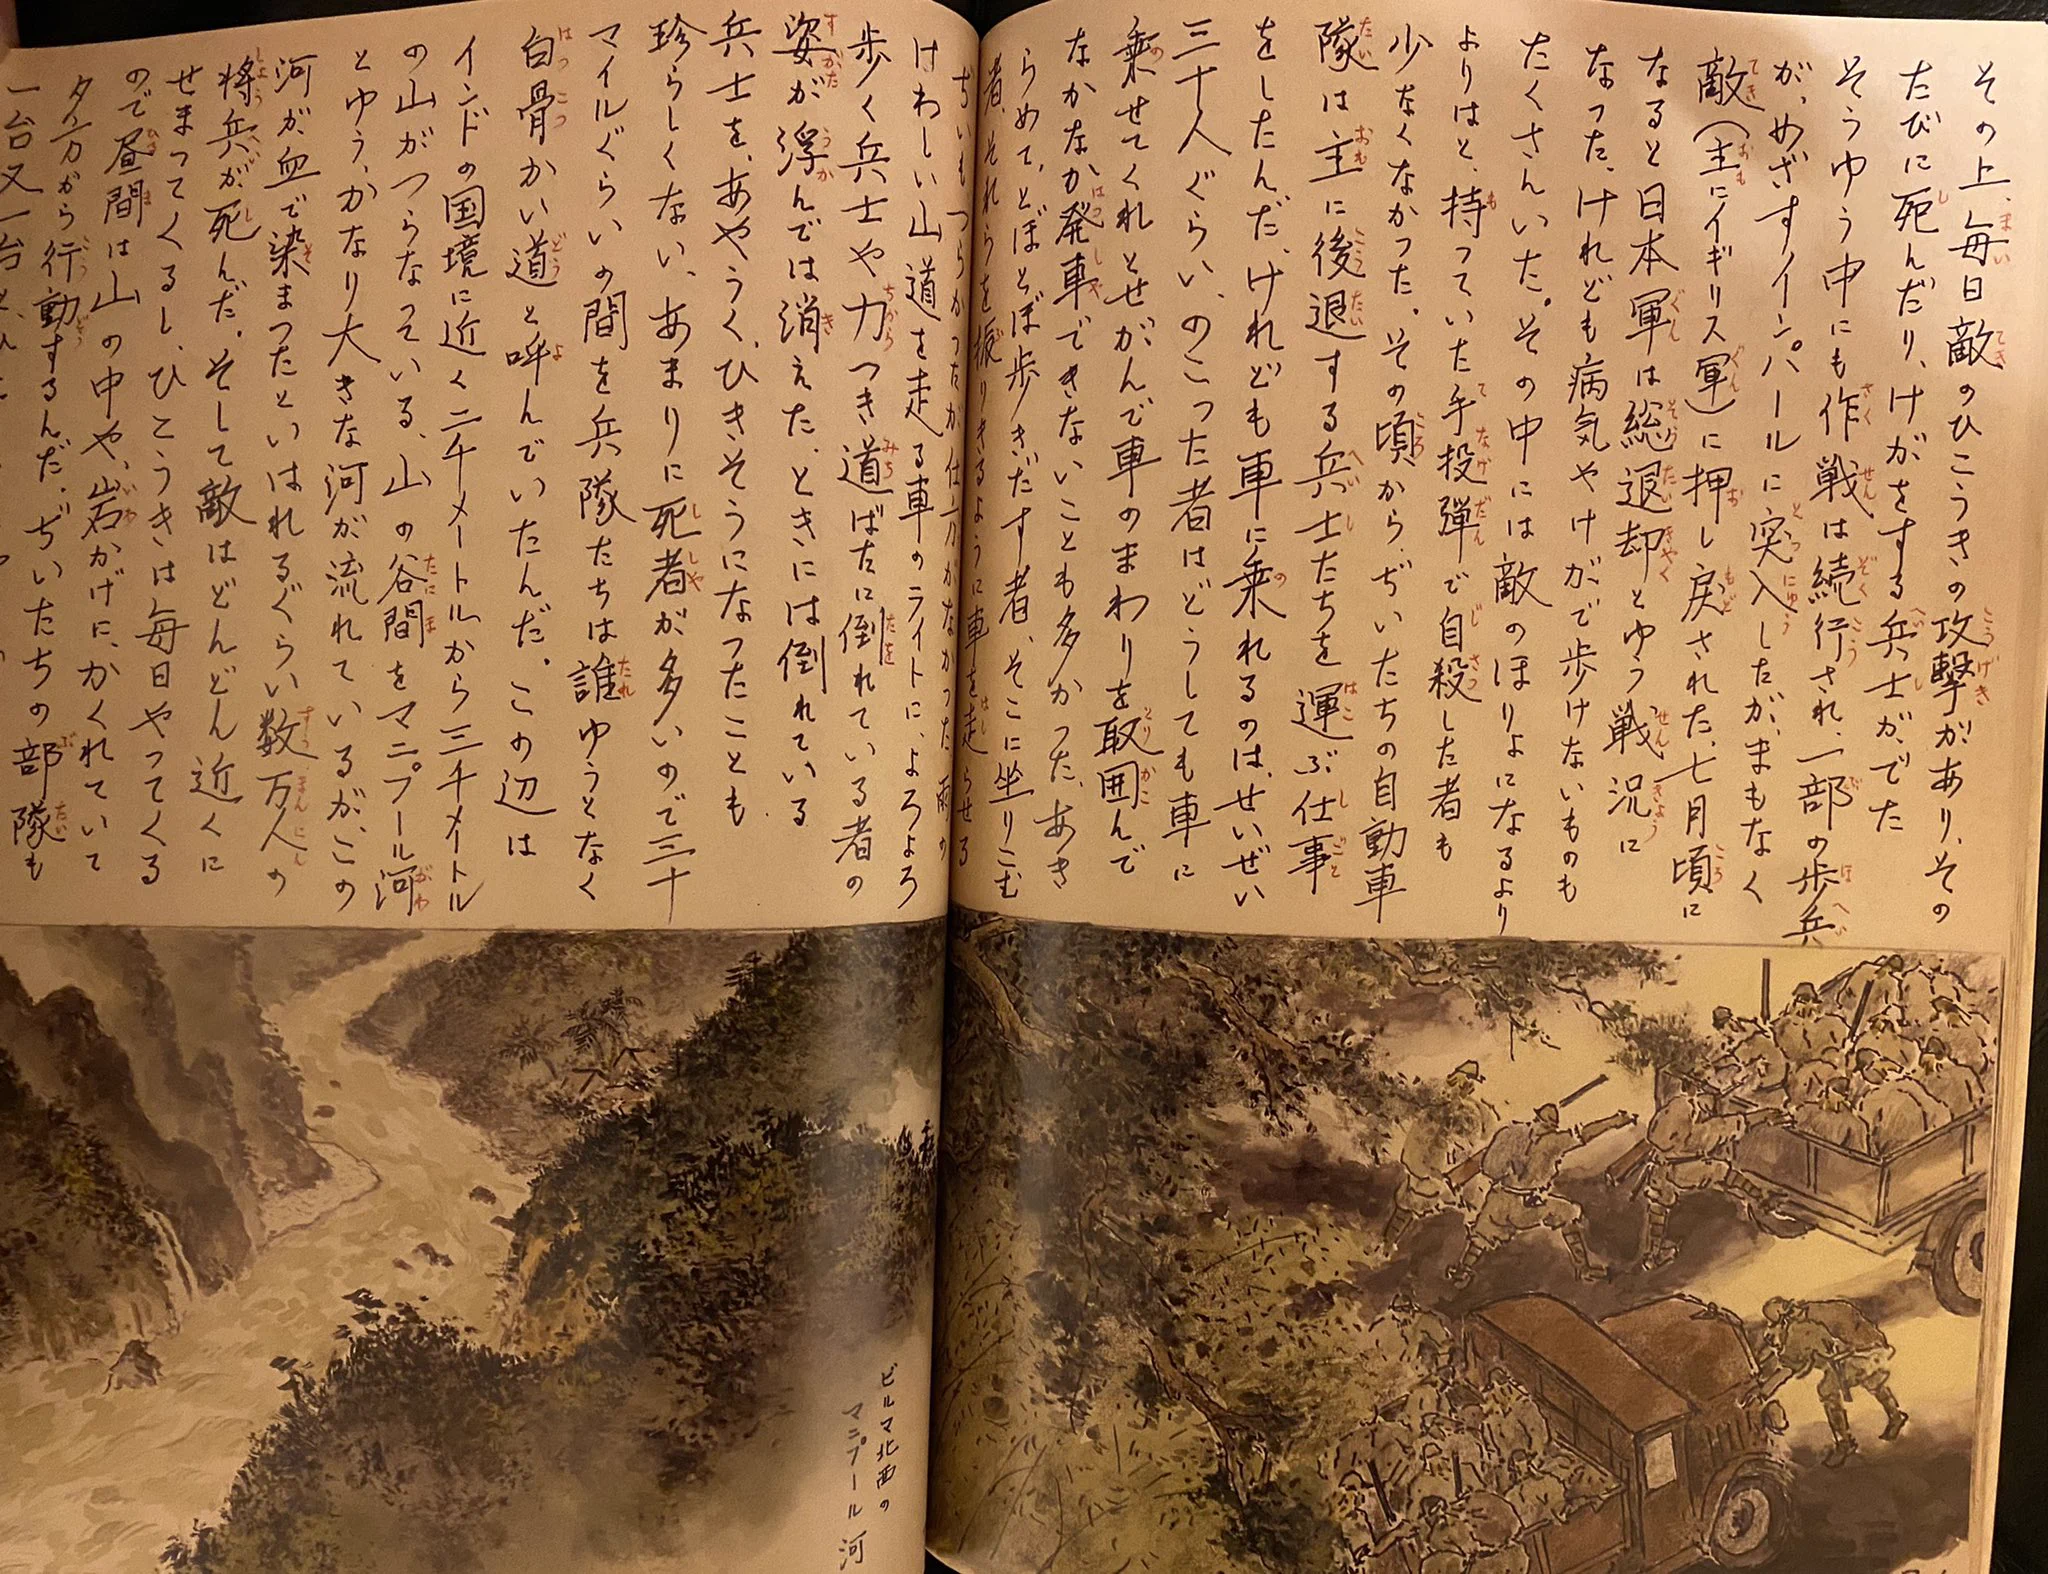 その上、毎日敵のひこうきの攻撃があり、その
たびに死んだり、けがをする兵士が、でた
そうゆう中にも作戦は続行され、一部の歩兵
が、めざすインパールに突入したが、まもなく
敵(主にイギリス軍)に押し戻された、七月頃に
なると日本軍は総退却とゆう戦況に
なった、けれども病気やけがで歩けないものも
たくさんいた。その中には敵のほりよになるより
よりはと、持っていた手投弾で自殺した者も
少なくなかった。その頃から、ぢいたちの自動車
隊は主に後退する兵士たちを運ぶ仕事
をしたんだ、けれども車に乗れるのは、せいぜい
三十人ぐらい、のこった者はどうしても車に
乗せてくれとせがんで車のまわりを取囲んで
なかなか発車できないことも多かった、あき
らめて、とぼとぼ歩きだす者、そこに坐りこむ
者、それらを振りきるように車を走らせる
ぢいもつらかったが仕方がなかった雨の
けわしい山道を走る車のライトに、よろよろ
歩く兵士や力つき道ばたに倒れている者の
姿が浮んでは消えた、ときには倒れている
兵士を、あやうく、ひきそうになったことも
珍らしくない、あまりに死者が多いので三十
マイルぐらいの間を兵隊たちは誰ゆうとなく
白骨かい道と呼んでいたんだ。この辺は
インドの国境に近く二千メートルから三千メートル
の山がつらなっている、山の谷間をマニプール河
とゆう、かなり大きな河が流れているが、この
河が血で染まったといはれるぐらい数万人の
将兵が死んだ。そして敵はどんどん近くに
せまってくるし、ひこうきは毎日やってくる
ので昼間は山の中や、岩かげに、かくれていて
夕方から行動するんだ、ぢいたちの部隊も
一台又一台と
ビルマ北西の
マニプール河